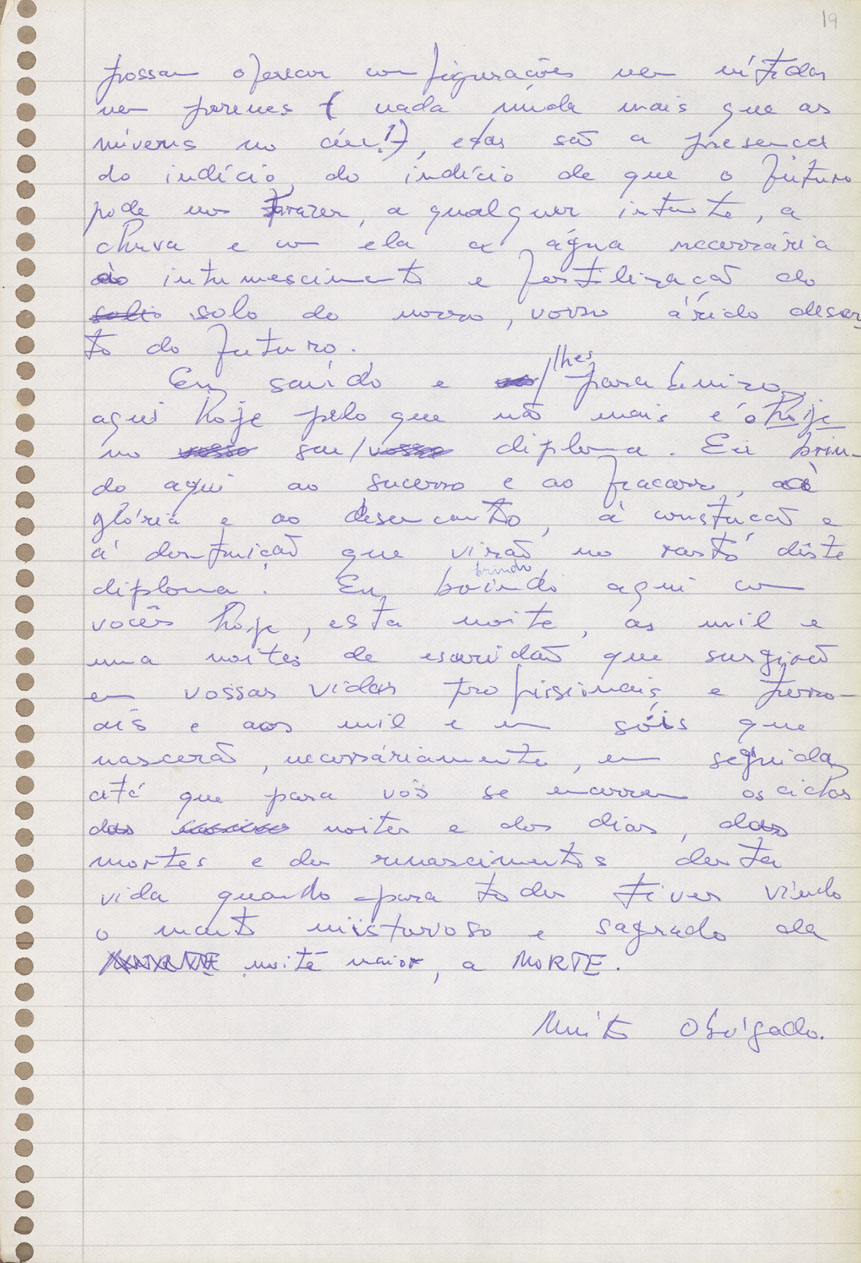 19
possam oferecer configurações nem nítidas
nem perenes ( nada muda mais que as
núvens no céu!), elas são a presença
do indício, do indício de que o futuro
pode nos trazer, a qualquer instante, a
chuva e com ela a água necessária
ao intumescimento e fertilização do
solo do nosso, vosso árido deser-
to do futuro.
Eu saúdo e lhes parabenizo
aqui hoje pelo que não mais é o hoje
no seu diploma. Eu brin-
do aqui ao sucesso e ao fracasso, à
glória e ao desencanto, à construção e
à destruição que virão no rastro deste
diploma. Eu brindo aqui com
vocês hoje, esta noite, as mil e
uma noites de escuridão que surgirão
em vossas vidas profissionais e pesso-
ais e aos mil e um sóis que
nascerão, necessáriamente, em seguida,
até que para vós se encerrem os ciclos
das noites e dos dias, das
mortes e dos renascimentos desta
vida quando para todos tiver vindo
o manto misterioso e sagrado da
noite maior, a MORTE.
Muito Obrigado.